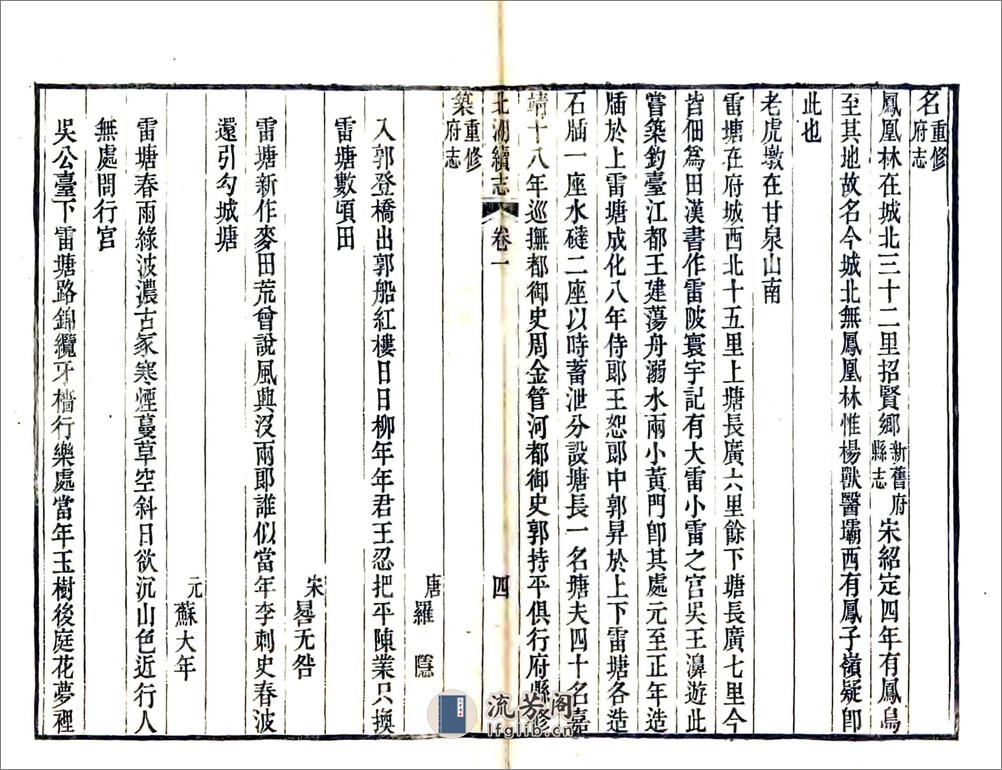 名重修府志
鳳凰林在城北三十二里招賢鄉新舊府縣志宋紹定四年有鳳鳥
至其地故名今城北無鳳凰林惟楊獸醫壩西有鳳子嶺疑卽
此也
老虎墩在甘泉山南
雷塘在府城西北十五里上塘長廣六里餘下塘長廣七里今
皆佃爲田漢書作雷陂寰宇記有大雷小雷之宮吳王濞遊此
嘗築釣臺江都王建蕩舟溺水兩小黃門卽其處元至正年造
牐於上雷塘成化八年侍郎王恕郎中郭昇於上下雷塘各造
石牐一座水䃮二座以時蓄泄分設塘長一名塘夫四十名嘉
靖十八年巡撫都御史周金管河都御史郭持平俱行府縣修
北湖續志 卷一 四
築重修府志
唐羅隱
入郭登橋出郭船紅樓日日柳年年君王忍把平陳業只換
雷塘數頃田
宋晷无咎
雷塘新作麥田荒曾說風與沒雨郎誰似當年李刺史春波
還引勾城塘
元蘇大年
雷塘春雨綠波濃古冢寒煙蔓草空斜日欲沉山色近行人
無處問行宮
吳公臺下雷塘路錦纜牙檣行樂處當年玉樹後庭花夢裡
流芳阁
lfglib.cn